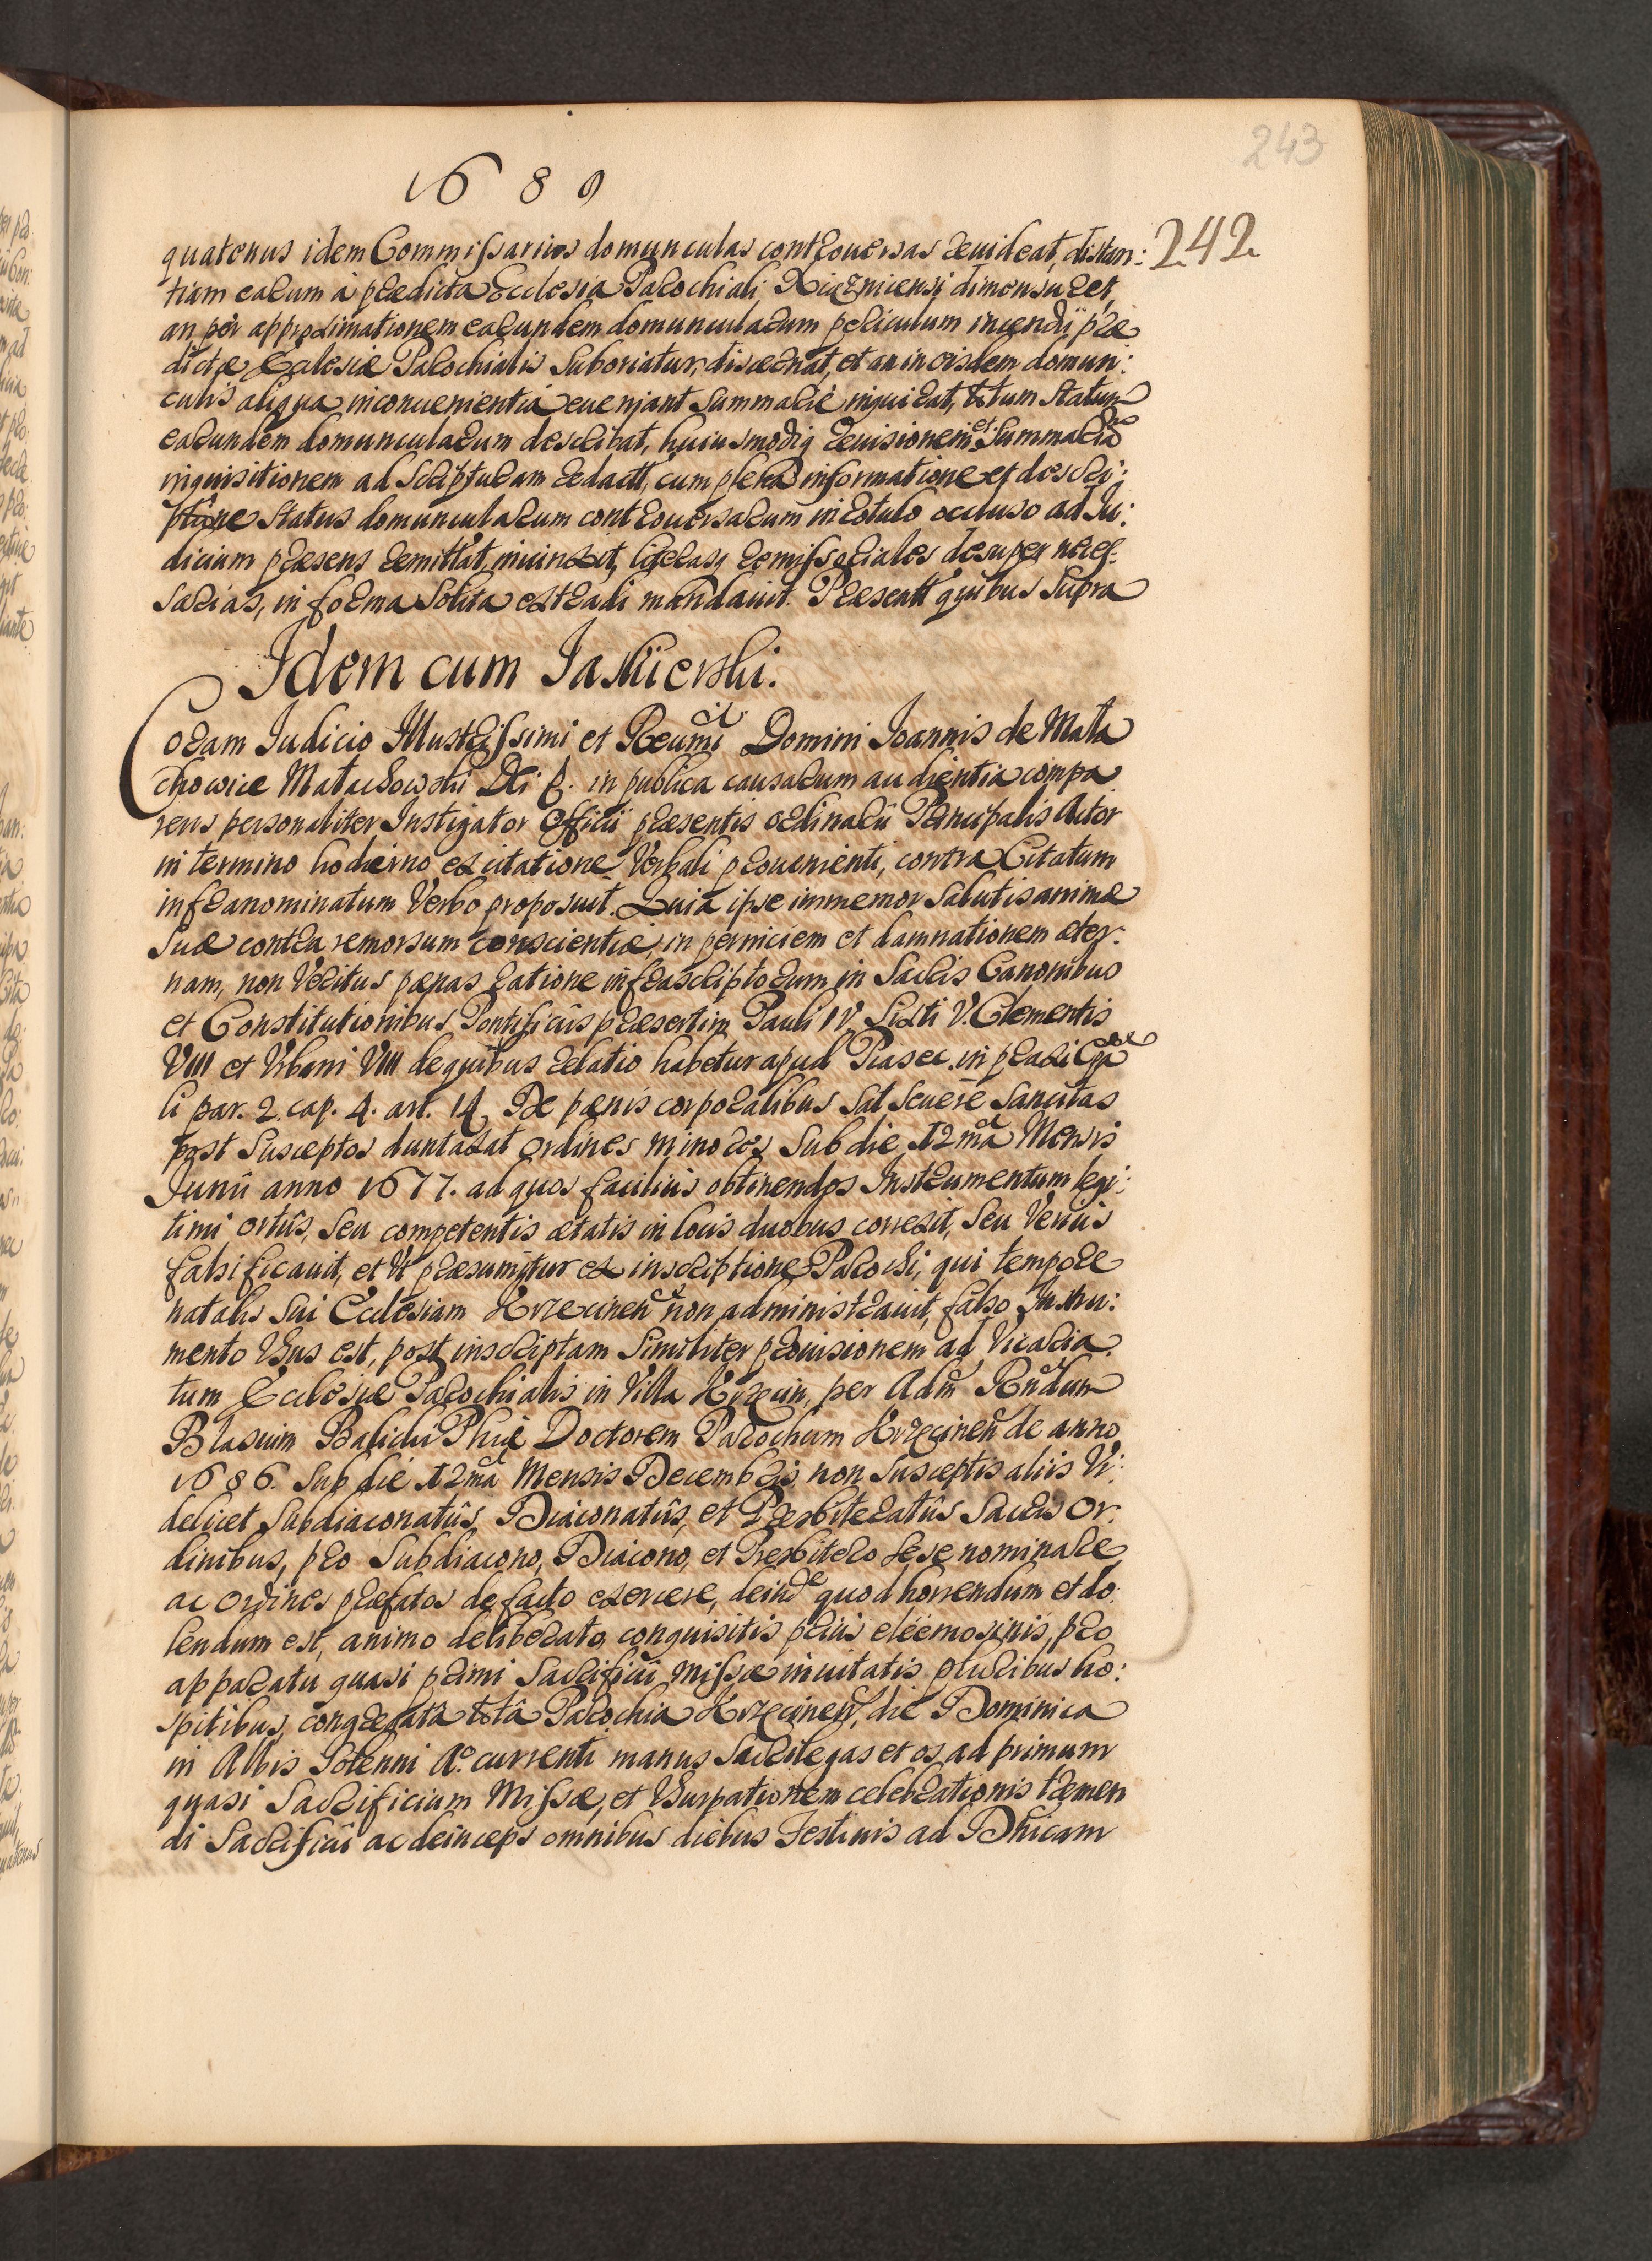 243
1689
242
quatenus idem Commissarius domunculas controuersas reuideat, distan:
tiam earum à praedicta Ecclesia Parochiali Xiążnicensi dimensuret,
an per approximationem earundem domuncularum periculum incendÿ prae
dictae Ecclesiae Parochialis suboriatur, discernat, et an in eisdem domun:
culis aliqua inconuenientia eueniant summarie inquirat, totum statum
earundem domuncularum describat, huiusmodiq reuisionem et summariā
inquisitionem ad scripturam redactt, cum plena informatione et descri:
ptione status domuncularum controuersarum in rotulo occluso ad Iu:
dicium praesens remittat, iniunxit, literasq remissoriales desuper neces:
sarias, in forma solita extradi mandauit. Praesentt quibus supra
Idem cum Jaskierski.
Coram Iudicio Illustrissimi et Reumi Domini Ioannis de Mała
chowice Małachowski Dei g. in publica causarum audientia compa
rens personaliter Instigator Officii praesentis ordinarii Principalis Actor
in termino hodierno ex citatione Verbali prouenienti, contra Citatum
infranominatum Verbo proposuit. Quia ipse immemor salutis animae
suae contra remorsum conscientiae, in perniciem et damnationem aeter:
nam, non Veritus paenas ratione infrascriptorum in Sacris Canonibus
et Constitutionibus Pontificiis praesertim Pauli IV, Sixti V. Clementis
VIII et Vrbani VIII de quibus relatio habetur apud Piasec. in praxi Epā
li par. 2. cap. 4. art. 14. De paenis corporalibus sat seuere sancitas
post susceptos duntaxat ordines minores sub die 12ma Mensis
Junii anno 1677. ad quos facilius obtinendos Instrumentum legi:
timi ortûs, seu competentis aetatis in locis duobus correxit, seu Verius
falsificauit, et Vt praesumitur ex inscriptione Parochi, qui tempore
natalis sui Ecclesiam Krzecinen non administrauit, falso Instru:
mento Vsus est, post inscriptam similiter prouisionem ad Vicaria:
tum Ecclesiae Parochialis in Villa Krzęcin, per Adm Rndum
Blasium Balicki Phiae Doctorem Parochum Krzęcinen de anno
1686. sub die 12ma Mensis Decembris, non susceptis aliis Vi:
delicet Subdiaconatûs, Diaconatûs, et Presbiteratûs Sacris Or:
dinibus, pro Subdiacono, Diacono, et Presbitero sese nominare,
ac ordines praefatos de facto exercere, deinde quod horrendum et do:
lendum est, animo deliberato, conquisitis prius eleemosinis, pro
apparatu quasi primi Sacrificii Missae inuitatis pluribus ho:
spitibus, congregata totâ Parochia Krzęcinen, die Dominica
in Albis Solenni Ao. currenti manus sacrilegas et os, ad primum
quasi Sacrificium Missae, et Vsurpationem celebrationis tremen
di Sacrificii ac deinceps omnibus diebus Festiuis ad Dnicam